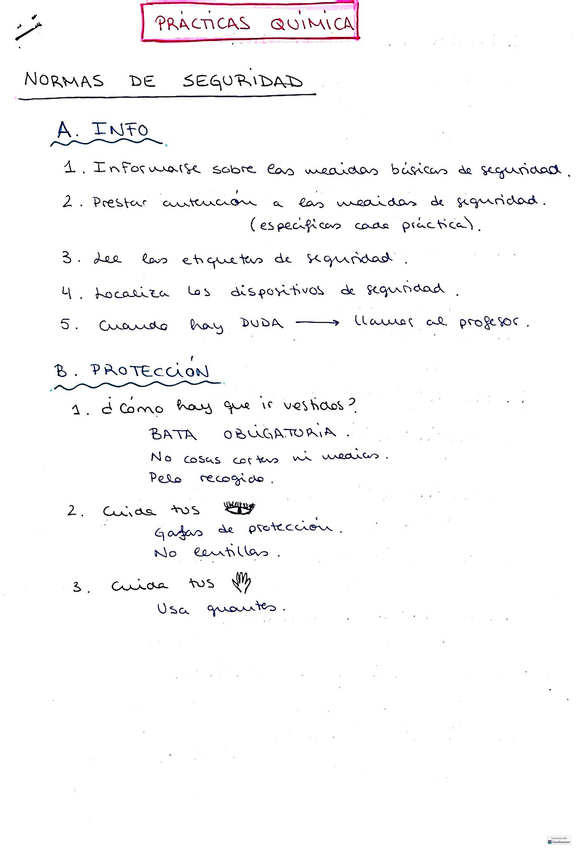 PRÁCTICAS QUÍMICA
NORMAS DE SEGURIDAD
A. INFO
1. Informarse sobre las medidas básicas de seguridad.
2. Prestar antención a las medidas de seguridad.
(específicas cada práctica).
3. Lee las etiquetas de seguridad.
4. Localiza los dispositivos de seguridad.
5. Cuando hay DUDA → llamar al profesor.
B. PROTECCIÓN
1. ¿Cómo hay que ir vestidos?
BATA OBLIGATORIA.
No cosas cortas ni medias.
Pelo recogido.
2. Cuida tus
Gafas de protección.
No lentillas.
3. Cuida tus
Usa guantes.
CamScanner